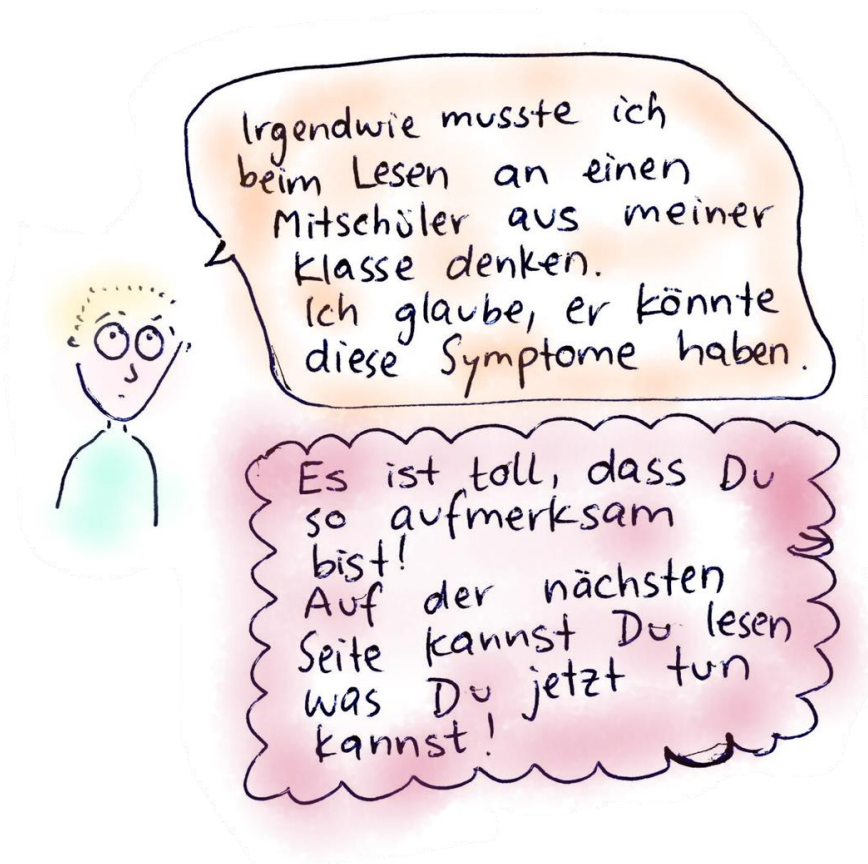 Irgendwie musste ich
beim Lesen an einen
Mitschüler aus meiner
Klasse denken.
Ich glaube, er könnte
diese Symptome haben.
Es ist toll, dass Du
so aufmerksam
bist!
Auf der nächsten
Seite kannst Du lesen
was Du jetzt tun
kannst!